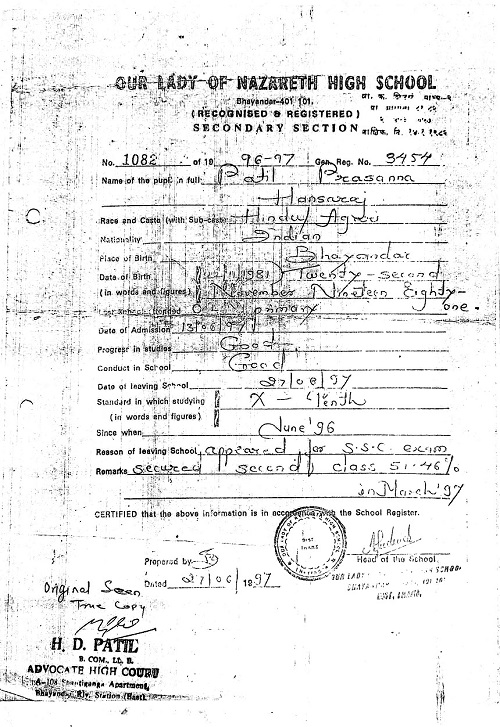 OUR LADY OF NAZARETH HIGH SCHOOL
Bhayandar-401 101.
(RECOGNISED & REGISTERED)
SECONDARY SECTION
No. 1082 of 19 96-97 Gen. Reg. No. 3454
Name of the pupil in full Patil Prasanna
Hansaraj
Race and Caste (with Sub-caste) Hindu Agri
Nationality Indian
Place of Birth Bhayandar
Date of Birth 22/11/1981 Twenty-second
(in words and figures) November Nineteen Eighty-
one.
Last School Attended O L N primary
Date of Admission 13/06/91
Progress in studies Good
Conduct in School Good
Date of leaving School 27/06/97
Standard in which studying X - Tenth
(in words and figures)
Since when June '96
Reason of leaving School appeared for S.S.C. exam
Remarks secured second class 51.46%
in March '97
CERTIFIED that the above information is in accordance with the School Register.
Prepared by
Head of the School
Dated 27/06/1997
OUR LADY SCHOOL
Original Seen
True Copy
H. D. PATIL
B. COM., LL. B.
ADVOCATE HIGH COURT
A-108 Shantiganga Apartment,
Bhayander Rly. Station (East),